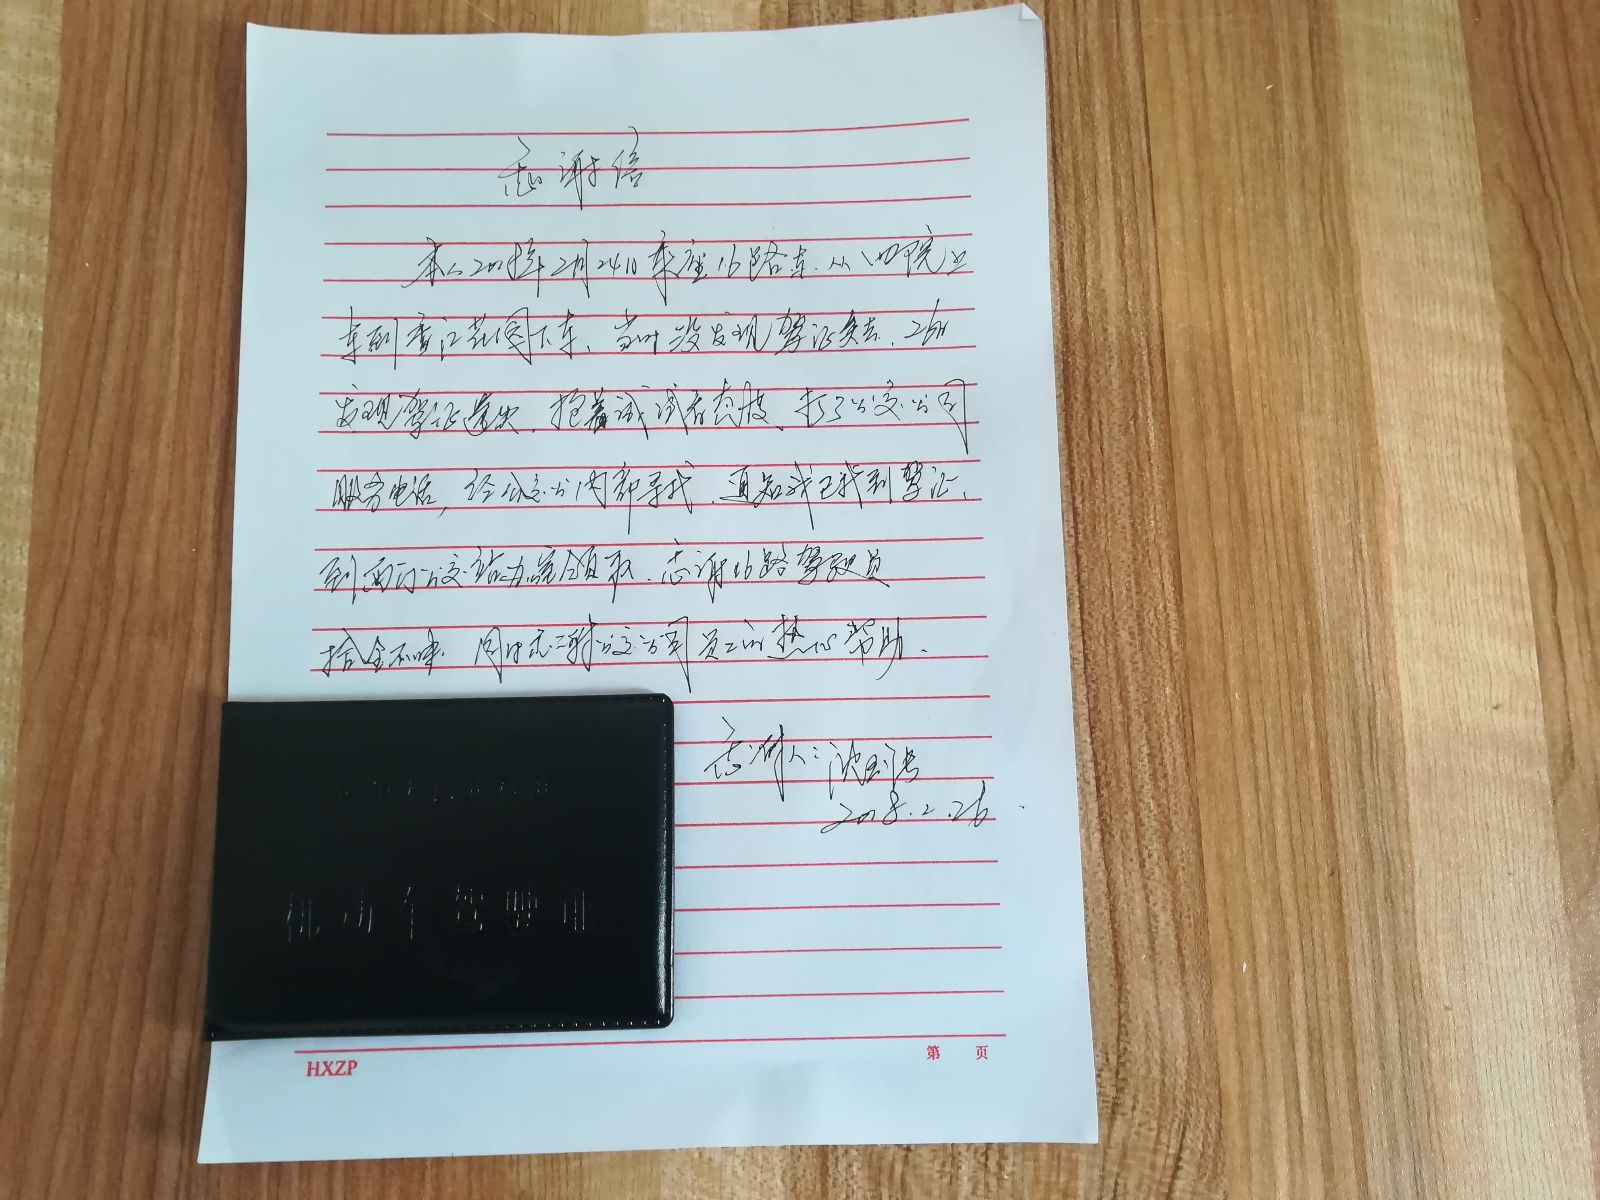 感谢信
本人2018年2月24日乘座16路车.从四院上
车到香江花园下车、当时没发现驾证失去.26日
发现驾证遗失、抱着试试看态度、打了公交公司
服务电话,经公交公司内部寻找、通知我已找到驾证、
到西门公交站办公室领取.感谢16路驾驶员
拾金不昧.同时感谢公交公司员工的热心帮助.
感谢人:
2018.2.26
中华人民共和国
机动车驾驶证
HXZP
第 页